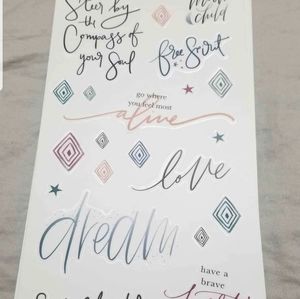 Steer by
the
Compass of
your Soul
moon
child
free Spirit
go where
you feel most
alive
love
dream
have a
brave